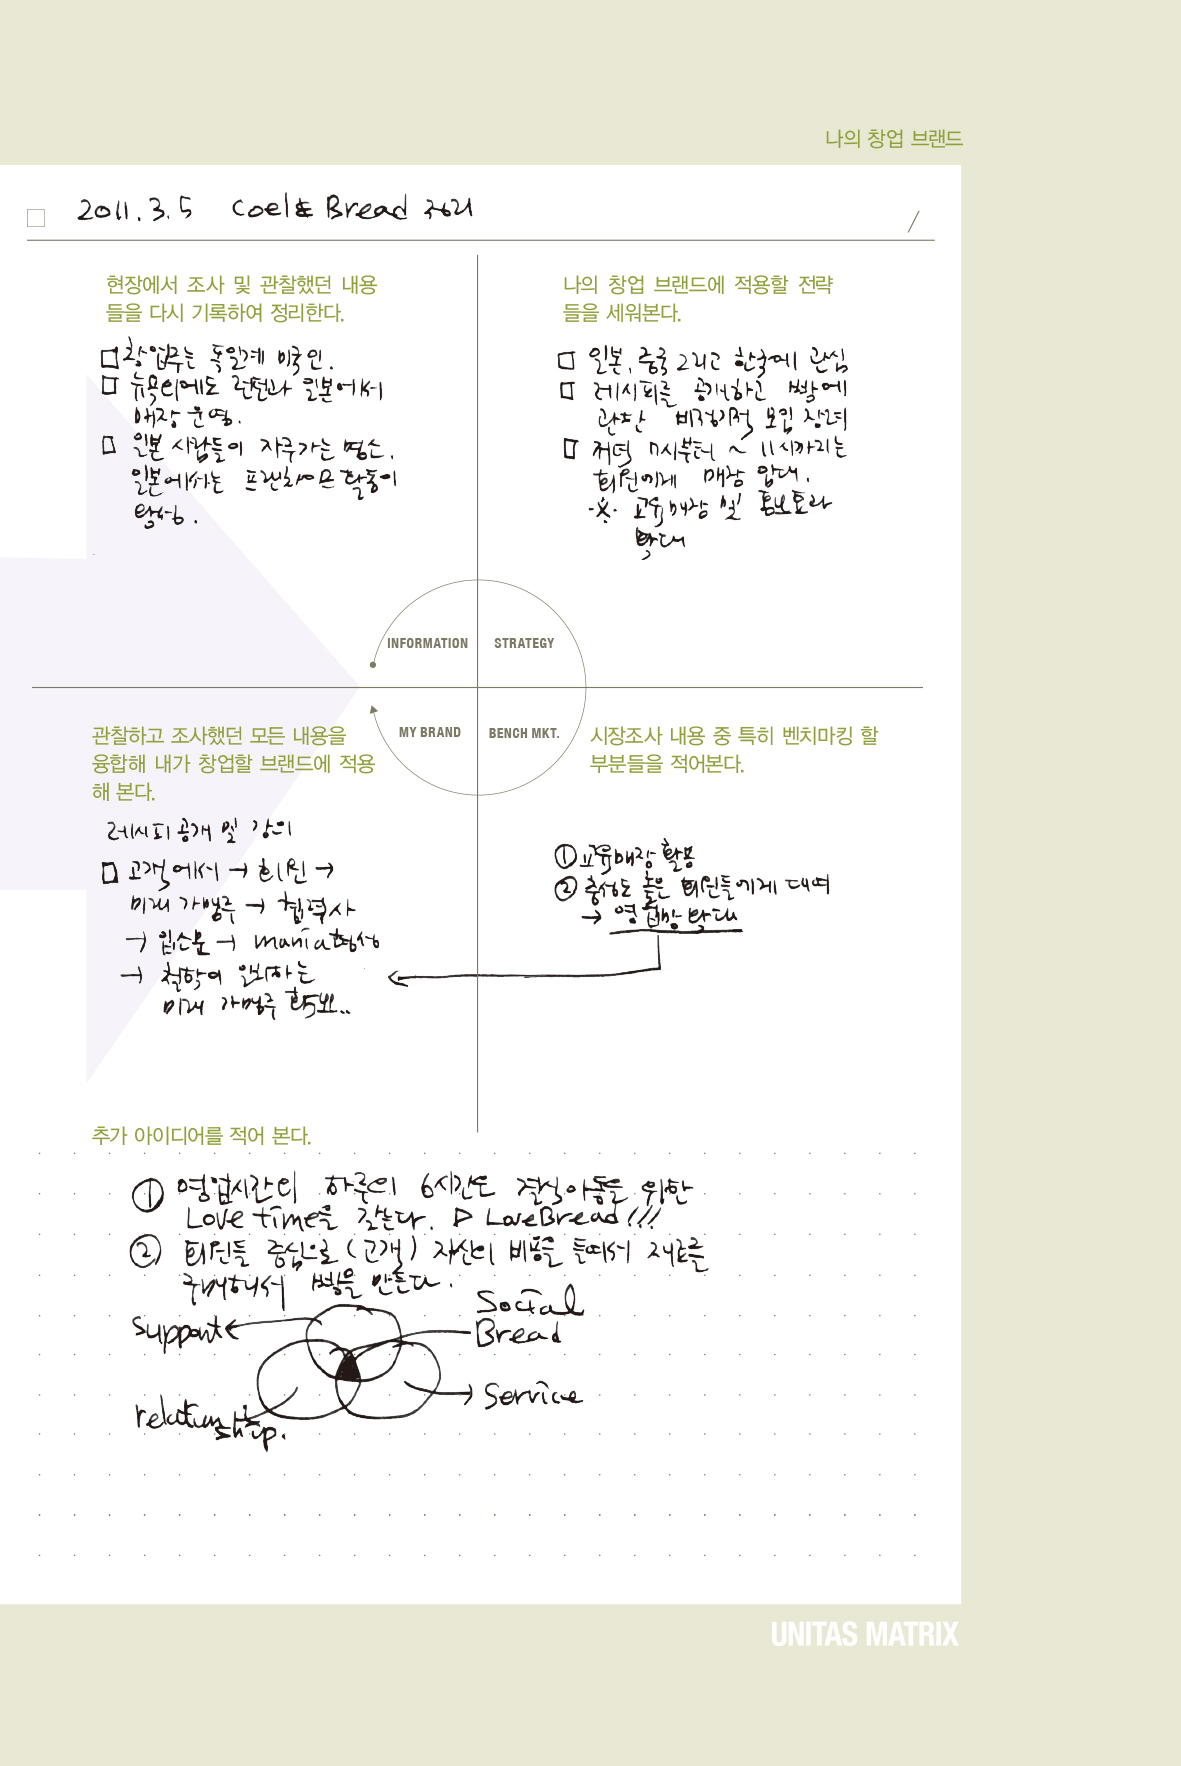 나의 창업 브랜드
2011.3.5 Bread 정리
현장에서 조사 및 관찰했던 내용
들을 다시 기록하여 정리한다.
창업주는 독일계 미국인.
뉴욕외에도 런던과 일본에서
매장 운영.
일본 사람들이 자주가는 명소.
일본에서는 프랜차이즈 활동이
왕성.
나의 창업 브랜드에 적용할 전략
들을 세워본다.
일본, 중국 그리고 한국에 관심
레시피를 공개하고 빵에
관한 비정기적 모임 장려
저녁 7시부터 ~ 11시까지는
회원에게 매장 임대.
※ 교육매장 및 홍보효과
확대
INFORMATION
STRATEGY
MY BRAND
BENCH MKT.
관찰하고 조사했던 모든 내용을
융합해 내가 창업할 브랜드에 적용
해 본다.
레시피 공개 및 강의
고객에서 → 회원 →
미래 가맹주 → 협력사
→ 입소문 → mania형성
→ 철학이 일치하는
미래 가맹주 확보..
시장조사 내용 중 특히 벤치마킹 할
부분들을 적어본다.
① 교육매장 활용
② 충성도 높은 회원들에게 대여
→ 영업망 확대
추가 아이디어를 적어 본다.
① 영업시간의 하루의 6시간도 결식아동을 위한
Love time을 갖는다. ▷ LoveBread!!!
② 회원들 중심으로 (고객) 자신의 비용을 들여서 재료를
구매해서 빵을 만든다.
Support
Social
Bread
Service
relationship.
UNITAS MATRIX